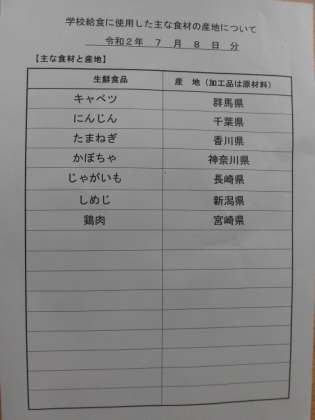 学校給食に使用した主な食材の産地について
令和２年　７　月　８　日　分
【主な食材と産地】
生鮮食品　産　地（加工品は原材料）
キャベツ　群馬県
にんじん　千葉県
たまねぎ　香川県
かぼちゃ　神奈川県
じゃがいも　長崎県
しめじ　新潟県
鶏肉　宮崎県